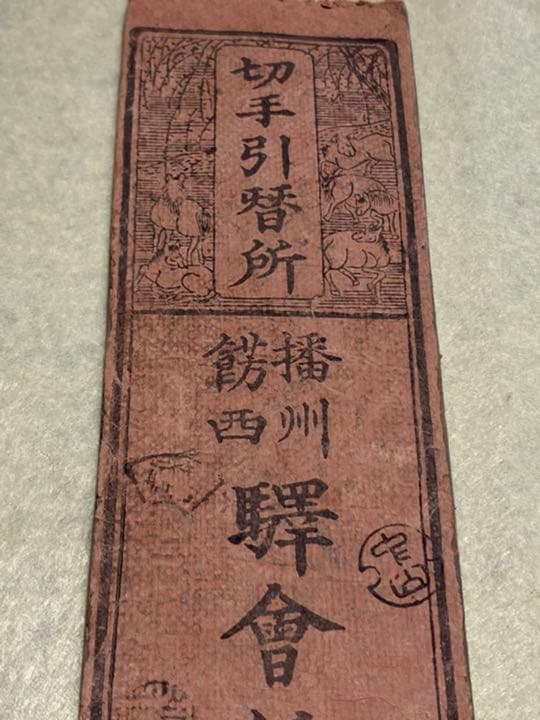 切手引替所
播州
餝西
驛會